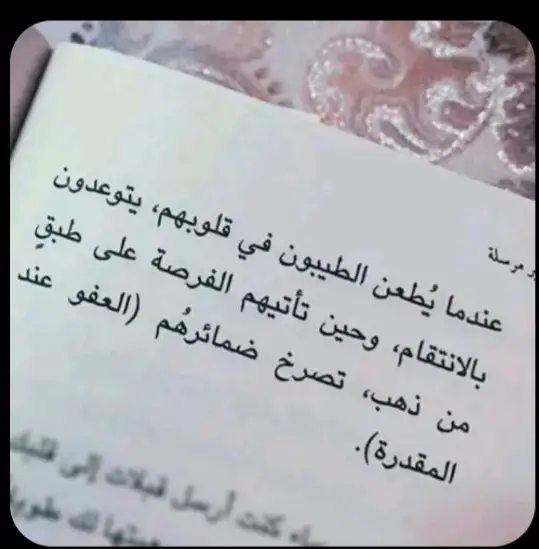 مرسلة
عندما يُطعن الطيبون في قلوبهم، يتوعدون
بالانتقام، وحين تأتيهم الفرصة على طبقٍ
من ذهب، تصرخ ضمائرهُم (العفو عند
المقدرة).
كنت أرسل قبلات إلى قلبك